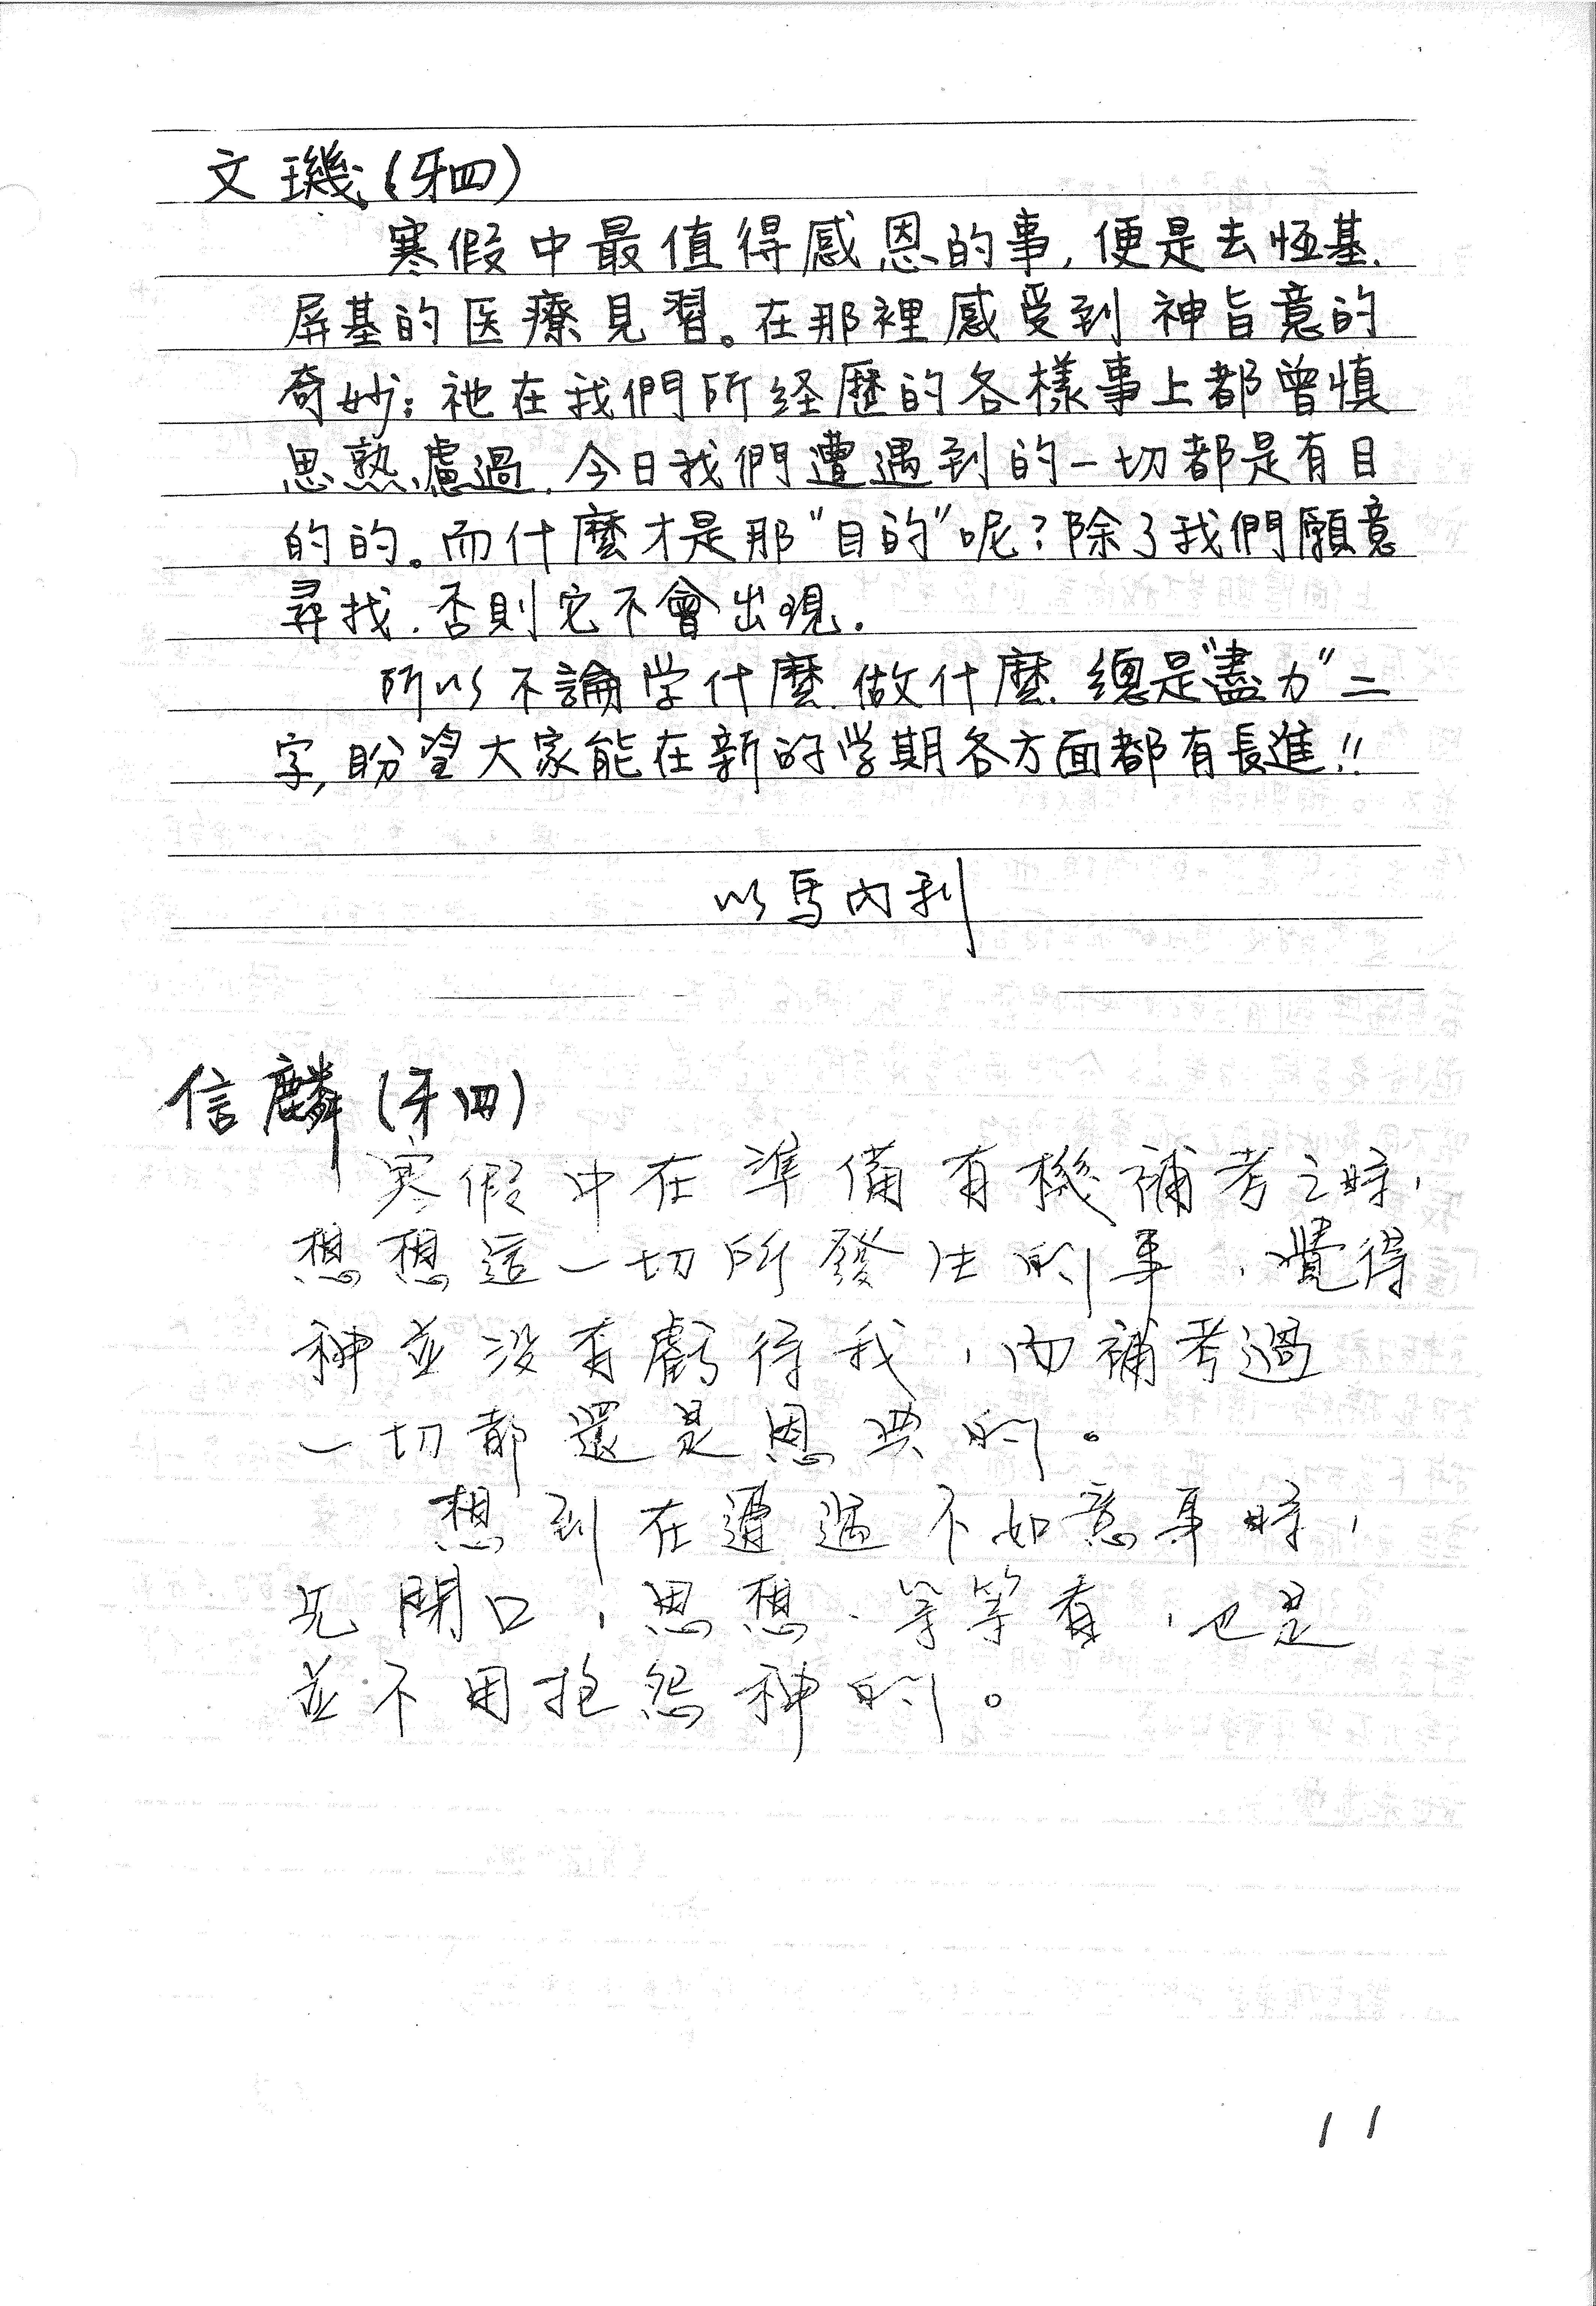 文璣(牙四)
寒假中最值得感恩的事,便是去恆基.
屏基的医療見習。在那裡感受到神旨意的
奇妙:祂在我們所経歷的各樣事上都曾慎
思熟慮過.今日我們遭遇到的一切都是有目
的的。而什麼才是那"目的"呢?除了我們願意
尋找.否則它不會出現.
所以不論学什麼.做什麼.總是"盡力"二
字,盼望大家能在新的学期各方面都有長進!!
以馬內利
信麟(牙四)
寒假中在準備有機補考之時,
想想這一切所發生的事,覺得
神並沒有虧待我,而補考過
一切都還是恩典的。
想到在遭遇不如意事時,
先閉口,思想、等等看,也是
並不用抱怨神的。
11